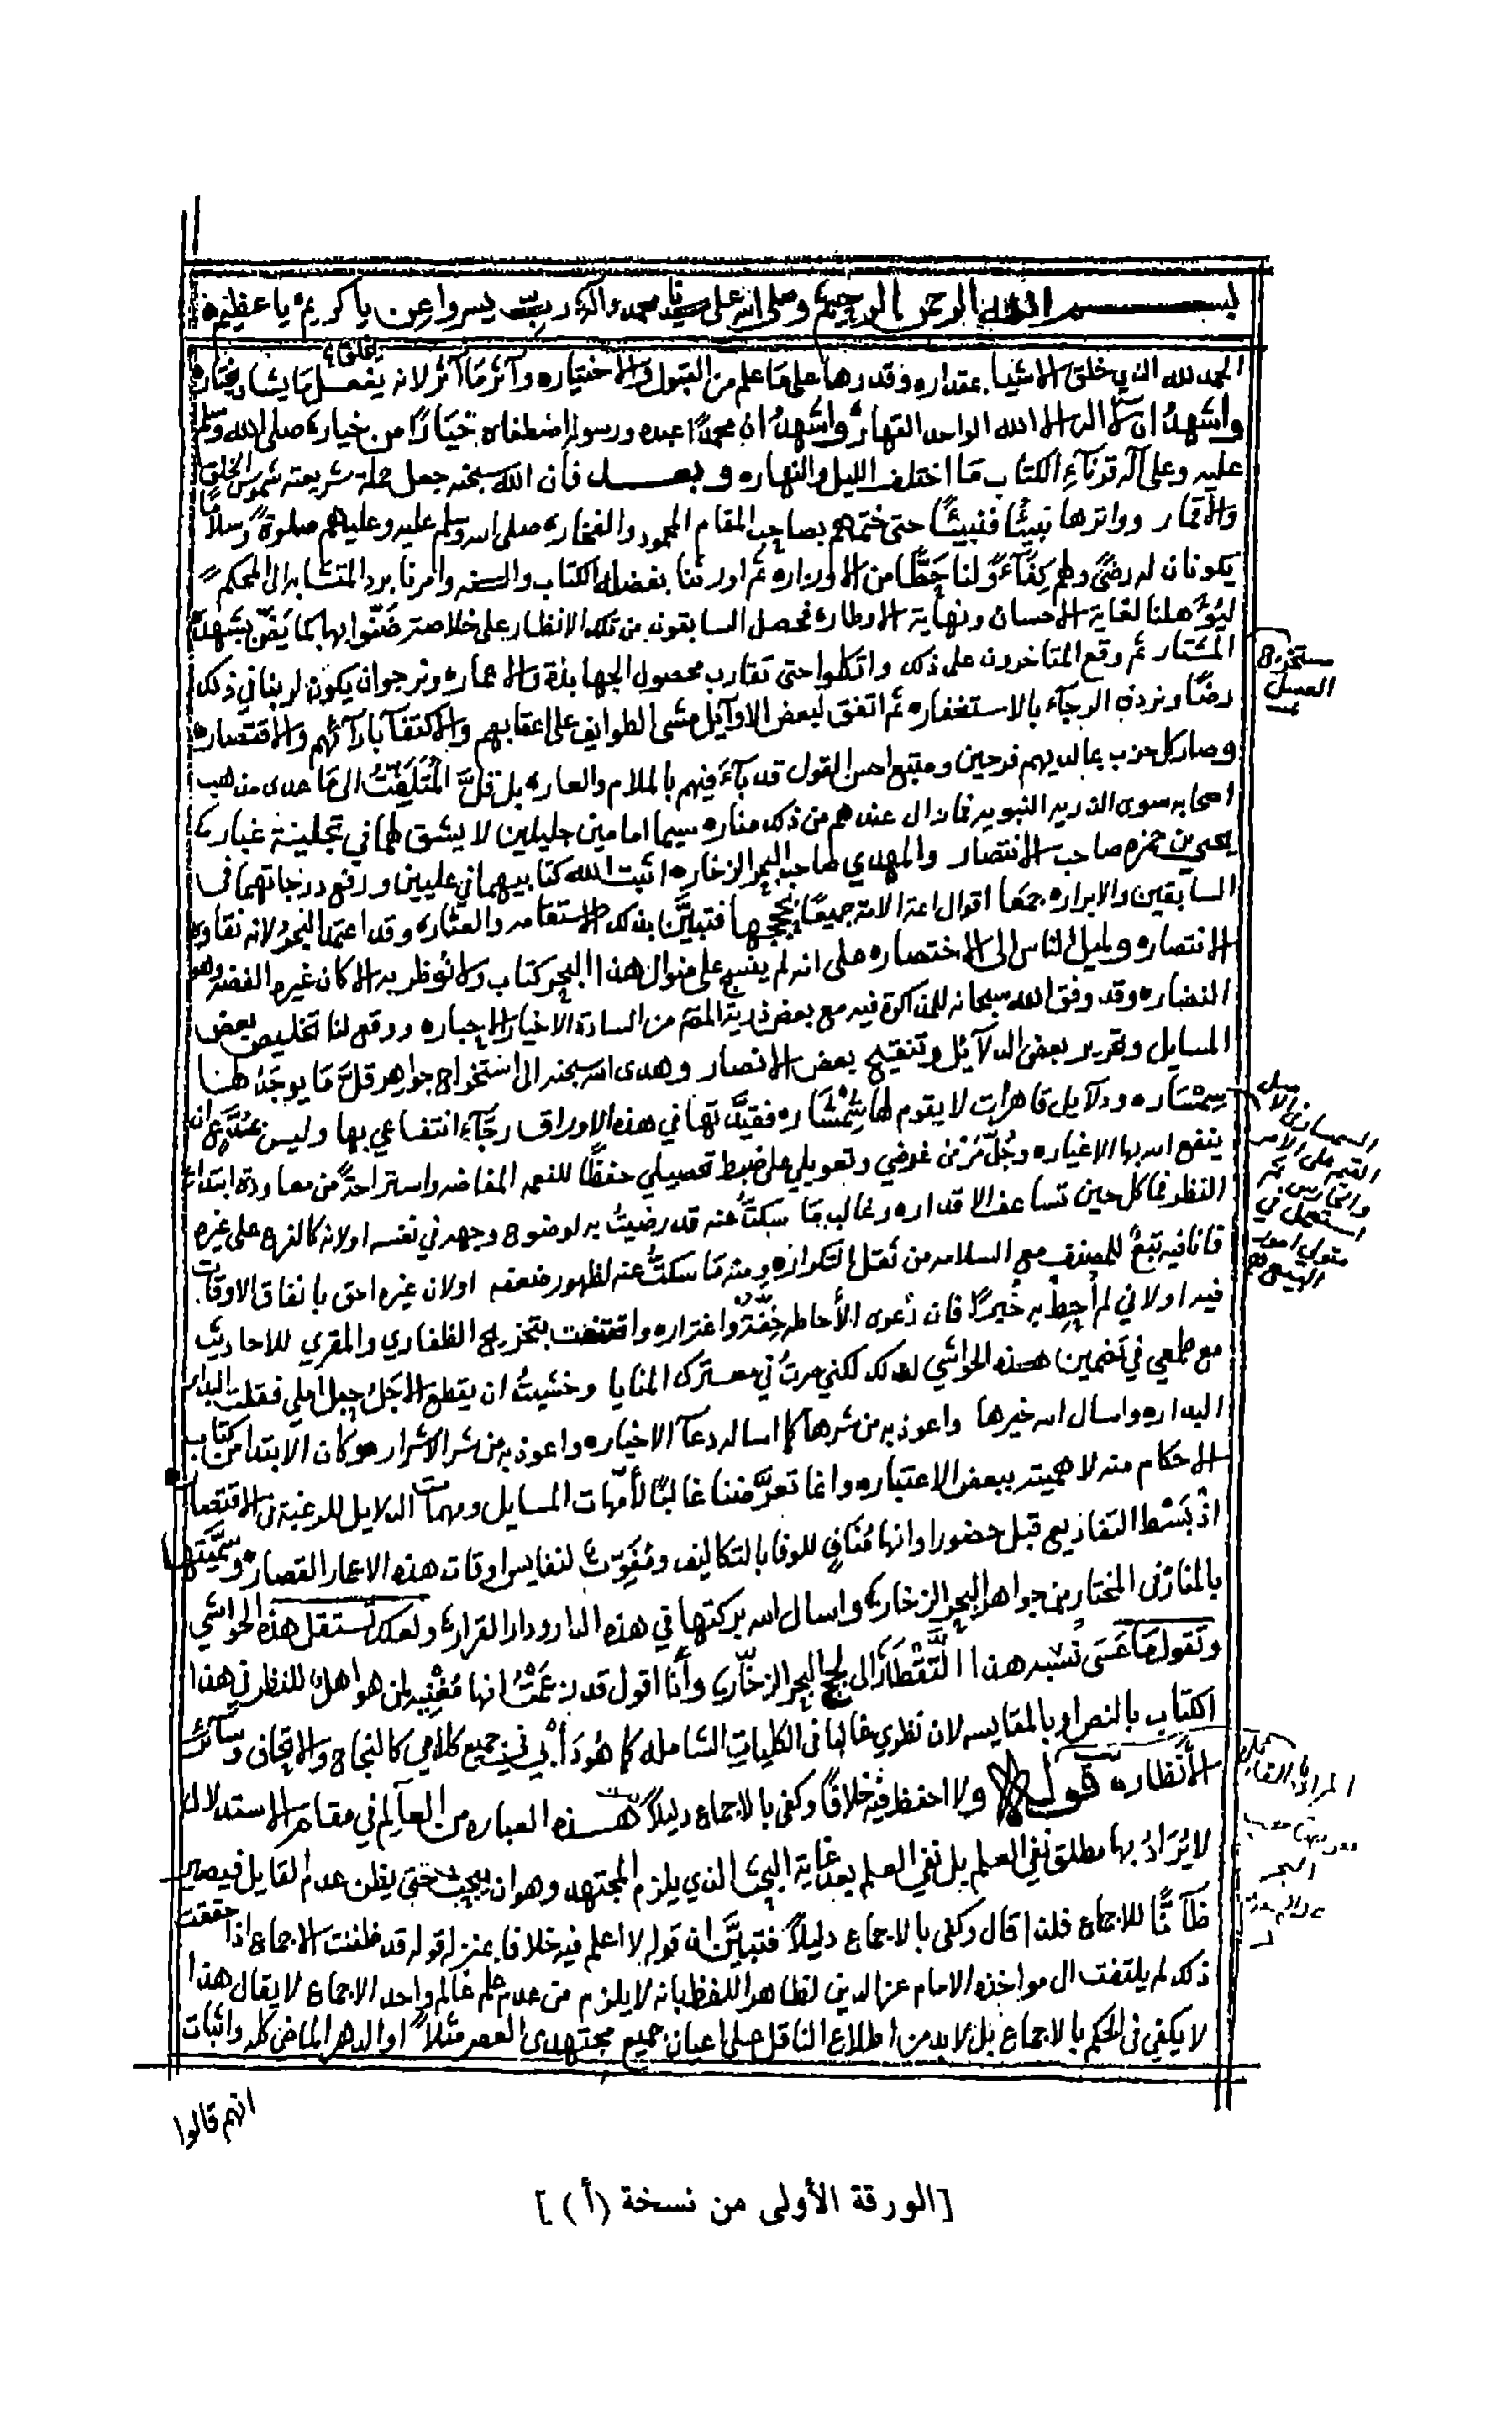 بسم الله الرحمن الرحيم وصلى الله على سيدنا محمد وآله رب يسر واعن يا كريم يا عظيم
الحمد لله الذي خلق الاشيا بمقداره وقدرها على ما علم من القبول والاختياره وآثر ما آثر لانه يفعل ما يشا ويختاره
يخلق
واشهد ان لا اله الا الله الواحد القهار واشهد ان محمدًا عبده ورسوله اصطفاه خيارًا من خياره صلى الله وسلم
عليه وعلى آله قرنآء الكتاب ما اختلف الليل والنهاره وبعد فان الله سبحنه جعل حملة شريعته شموس الخلق
والاقمار وواترها نبيئًا فنبيئًا حتى ختمهم بصاحب المقام المحمود والفخاره صلى الله وسلم عليه وعليهم صلوة وسلامًا
يكونان له رضىً ولهم كفآءً ولنا حطًّا من الاوزاره ثم اورثنا بفضله الكتاب والسنه وامرنا برد المتشابه الى المحكم
ليؤهلنا لغاية الاحسان ونهاية الاوطاره فحصل السابقون من تلك الانظار على خلاصة ضنّوا بها كما يضن بشهده
المشتار ثم وقع المتاخرون على ذلك واتكلوا حتى تقارب محصول الجهابذة والاعماره ونرجوان يكون لربنا في ذلك
مستخرج
العسل
رضًا ونردف الرجآء بالاستغفاره ثم اتفق لبعض الاوآيل مشى الطوايف على اعقابهم والاكتفآ بارآئهم والاقتصاره
وصار كل حزب بما لديهم فرحين ومتبع احسن القول قد بآءَ فيهم بالملام والعاره بل قلَّ المُتلفِّتُ الى ما عدى مذهب
اصحابه سوى الذريه النبويه فما زال عندهم من ذلك مناره سيما امامين جليلين لا يشق لهما في تجليته غباره
يحيى بن حمزه صاحب الانتصار والمهدي صاحب البحر الزخاره اثبت الله كتابيهما في عليين ورفع درجاتهما في
السابقين والابراره جمعا اقوال ايمة الامة جميعًا بحججها فتبيَّن بذلك الاستقامه والعثاره وقد اعتمد البحر لانه نقاوة
الانتصاره ولميل الناس الى الاختصاره على انه لم ينسج على منوال هذا البحر كتاب ولا نوظر به الا كان غيره الفضه وهو
النضاره وقد وفق الله سبحانه للمذاكرة فيه مع بعض ذرية المصنف من السادة الاخيار الاحباره ووقع لنا تخليص بعض
المسايل وتقرير بعض الدلآئل وتنقيح بعض الانصار وهدى الله سبحنه الى استخراج جواهر قلَّ ما يوجد لها
سِمْسَاره ودلآيل قاهرات لا يقوم لها فقيَّدتها في هذه الاوراق رجآء انتفاعي بها وليس عندي ان
السمسار في الاصل
القيم على الامر
والحارس ثم
استعمل في
متولي امور
البيع
ينتفع الله بها الاغياره وجُلّ غرضي وتعويلي على ضبط تحصيلي حفظًا للنعمه المفاضه واستراحةً من معاودة ابتدآء
النظر فما كل حين تساعف الاقداره وغالب ما سكتُّ عنه قد رضيتُ به لوضوح وجهه في نفسه اولانه كالفرع على غيره
فانا فيه تبعٌ للمصنف مع السلامه من ثقل التكرازه ومنه ما سكتُّ عنه لظهور ضعفه اولان غيره احق بانفاق الاوقات
فيه اولاني لم أُحِطْ به خُبْرًا فان دعوى الأحاطه خِفَّةٌ واغتراره واقتنعت بتخريج الظفاري والمقري للاحاديث
مع طمعي في تضمين هذه الحواشي لذلك لكني صرتُ في معترك المنايا وخشيتُ ان يقطع الاجل حبل املي فقلت البدار
البداره واسال الله خيرها واعوذ به من شرها كما اساله دعآ الاخياره واعوذ به من شر الاشرار وكان الابتدا من كتاب
الاحكام منه لاهميته ببعض الاعتباره وانما تعرَّضنا غالبًا لأمّهات المسايل ومهمات الدلايل للرغبة في الاقتصار
اذْ بَسْط التفاريع قبل حضور اوانها مُنافٍ للوفا بالتكاليف ومُفَوِّت لنفايس اوقات هذه الاعمار القصار وسمّيتها
بالمنار في المختار من جواهر البحر الزخاره واسال الله بركتها في هذه الدار ودار القراره ولعلك تستقل هذه الحواشي
وتقول ما عَسَى نسبه هذا الى لجج البحر الزخّاره وأنا اقول قد زعمتُ انها مُغْنيه لمن هو اهلٌ للنظر في هذا
الكتاب بالنص او بالمقايسه لان نظري غالبا في الكليات الشامله كما هُودَأْبي في جميع كلامي كالنجاح والاتحاف وسآئر
الأنظاره قوله ولا احفظ فيه خلافًا وكفى بالاجماع دليلاً هذه العباره من العآلِم في مقام الاستدلال
لا يُرَادُ بها مطلق نفي العلم بل نفي العلم بعد غاية البحث الذي يلزم المجتهد وهوان يبحث حتى يظن عدم القايل فيصير
ظآنًّا للاجماع فلذا قال وكفى بالاجماع دليلاً فتبيَّن ان قوله لا اعلم فيه خلافا بمنزله قوله قد ظننت الاجماع اذا حققت
ذلك لم يلتفت الى مواخذة الامام عز الدين لظاهر اللفظ بانه لا يلزم من عدم علم عالم واحد الاجماع لا يقال هذا
لا يكفي في الحكم بالاجماع بل لا بد من اطلاع الناقل على اعيان جميع مجتهدى العصر مثلاً اوالدهر الماضي كله واثبات
انهم قالوا
[الورقة الأولى من نسخة (أ)]